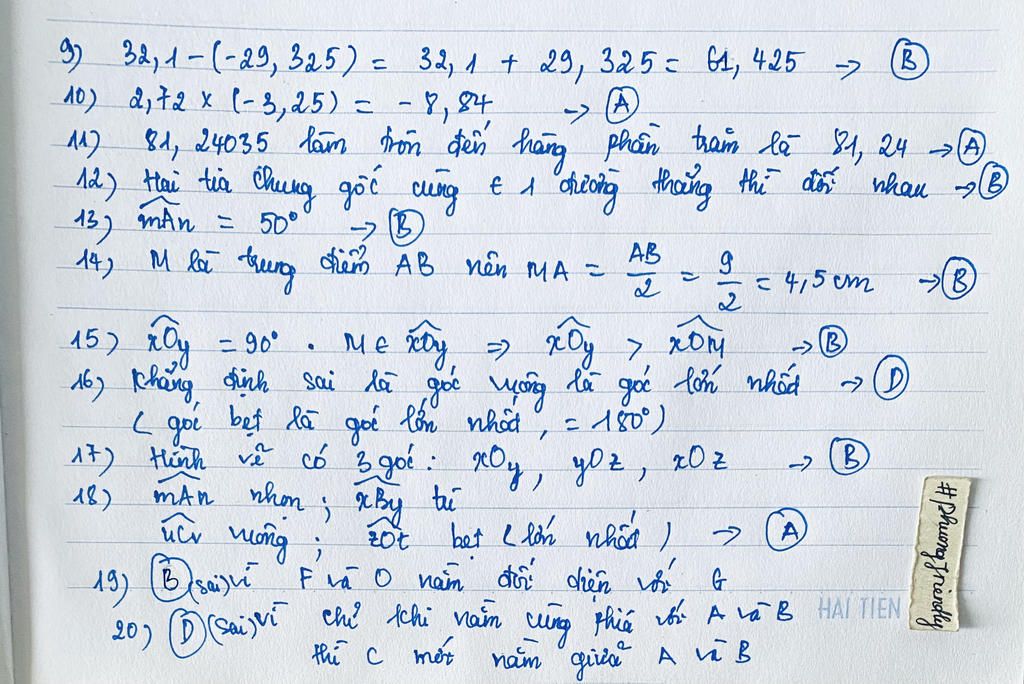 9) 32,1 - (-29,325) = 32,1 + 29,325 = 61,425 → B
10) 2,72 x (-3,25) = -8,84 → A
11) 81,24035 làm tròn đến hàng phần trăm là 81,24 → A
12) Hai tia chung gốc cùng ∈ 1 đường thẳng thì đối nhau → B
13) mAn = 50° → B
14) M là trung điểm AB nên MA = AB/2 = 9/2 = 4,5 cm → B
15) xOy = 90° . M ∈ xOy ⇒ xOy > xOM → B
16) Khẳng định sai là góc vuông là góc lớn nhất → D
(góc bẹt là góc lớn nhất, = 180°)
17) Hình vẽ có 3 góc: xOy, yOz, xOz → B
18) mAn nhọn ; xBy tù
uCv vuông ; zOt bẹt (lớn nhất) → A
19) B (sai) vì F và O nằm đối diện với G
20) D (sai) vì chỉ khi nằm cùng phía với A và B
thì C mới nằm giữa A và B
HAI TIEN
#phuongfriendly